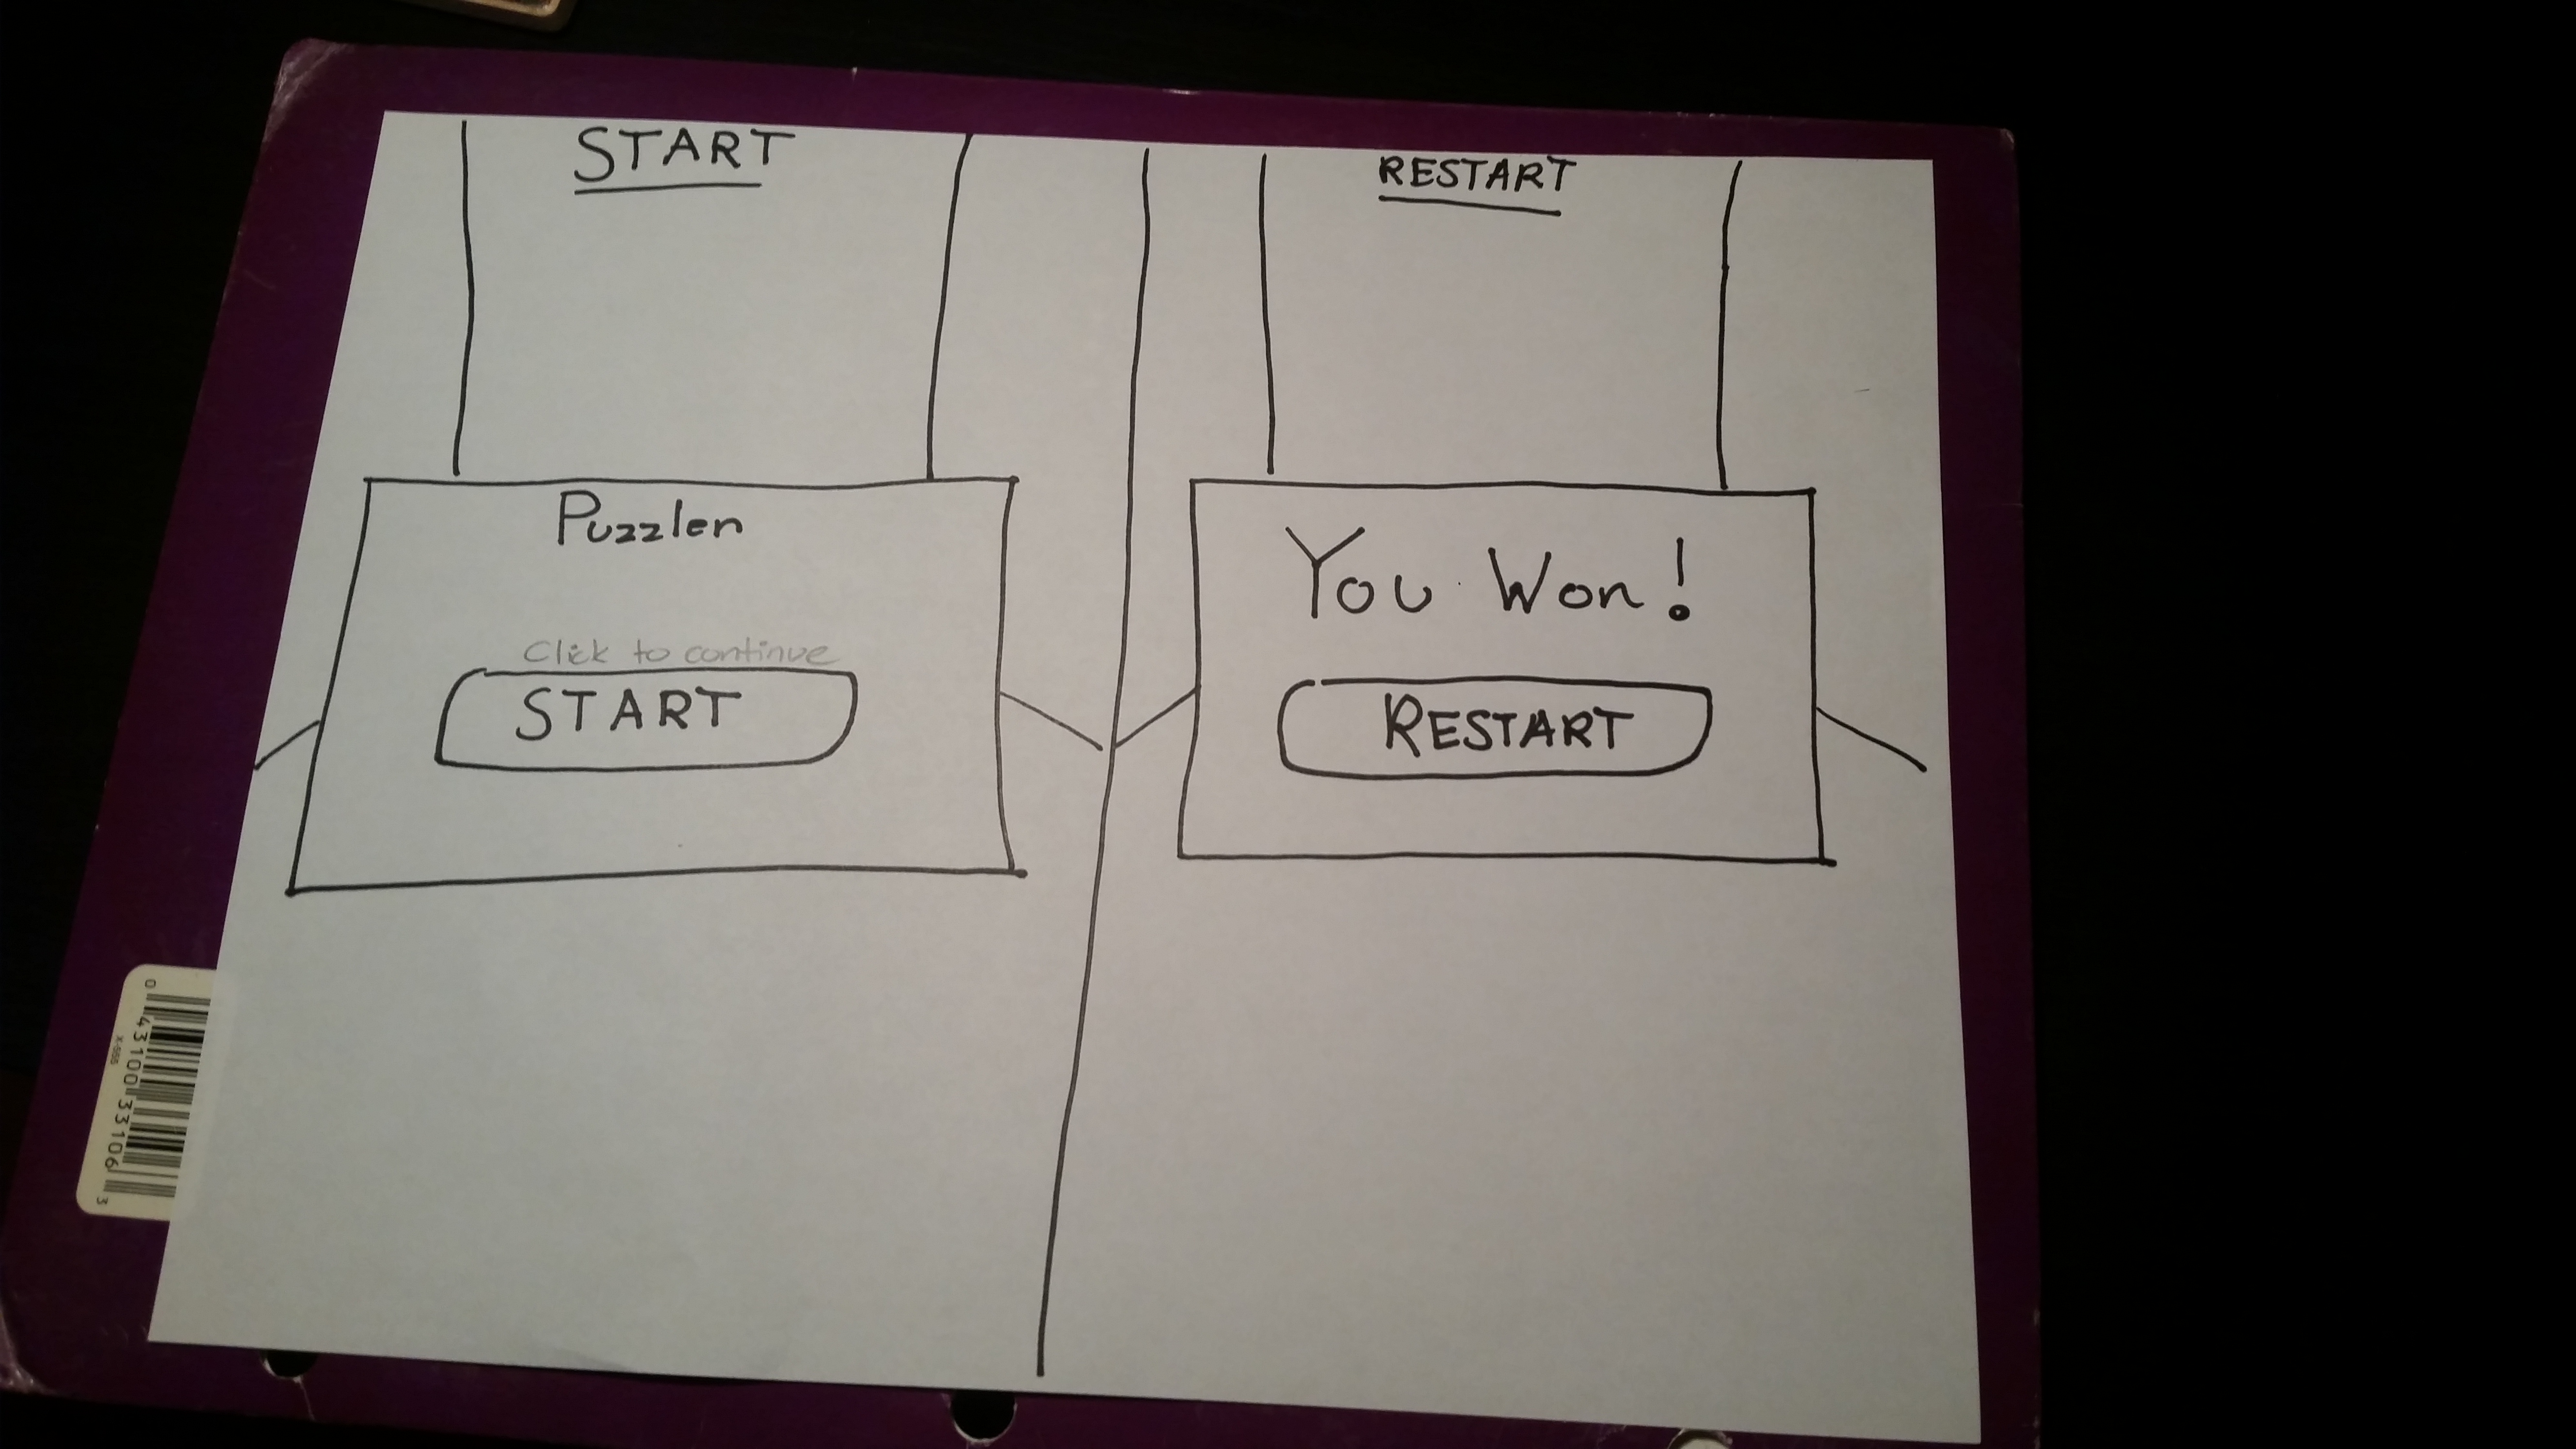 START
Puzzlen
Click to continue
START
RESTART
You Won!
RESTART
0 43100 33106 3